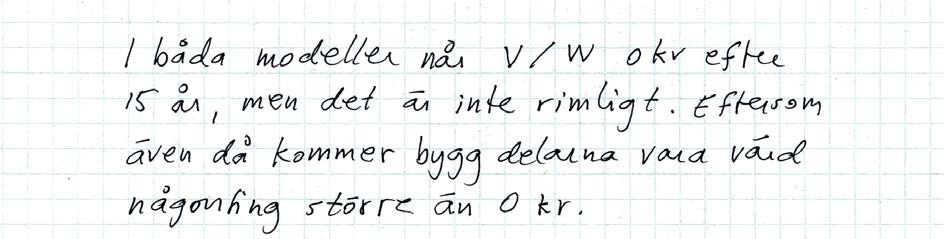 I båda modeller når V/W 0 kr efter
15 år, men det är inte rimligt. Eftersom
även då kommer bygg delarna vara värd
någonting större än 0 kr.